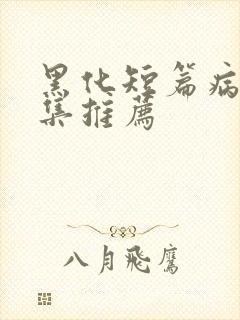 黑化短篇病
集推薦
八月飛鷹